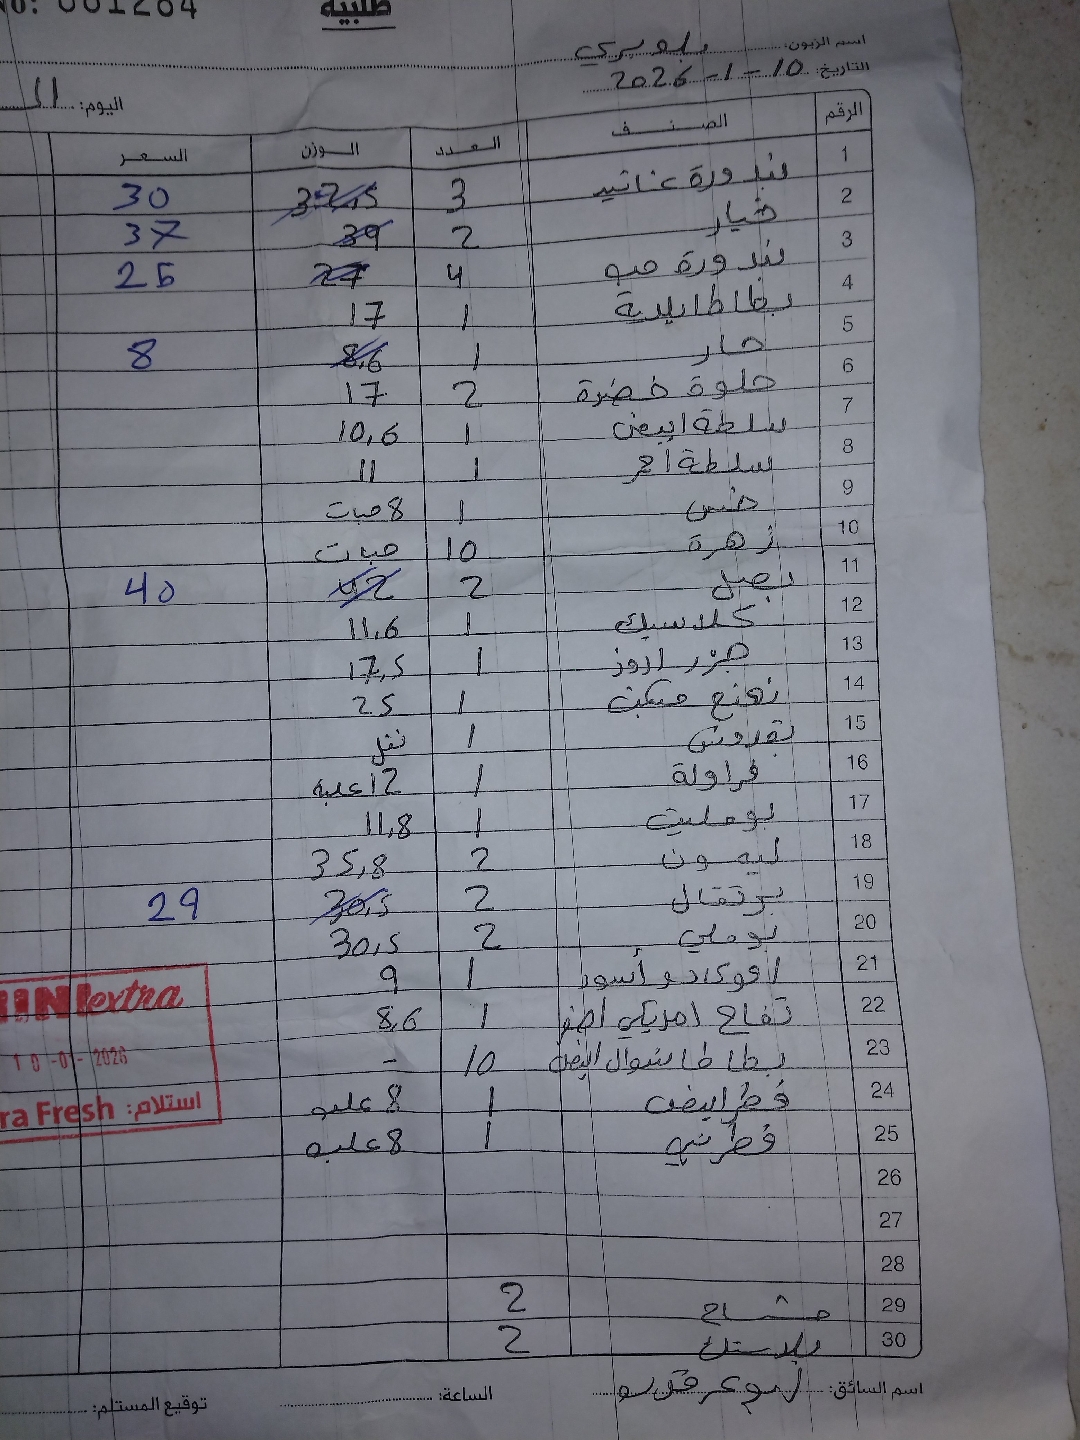 طلبية
No: 001264
اسم الزبون:
التاريخ: 10-1-2026
اليوم: ال
الرقم الصنف العدد الوزن السعر
1 بندورة عناقيد 3 37,5 30
2 خيار 2 39 37
3 بندورة حبه 4 27 25
4 بطاطا بلدية 1 17
5 حار 1 8,6 8
6 حلوة خضرة 2 17
7 سلطة ابيض 1 10,6
8 سلطة احمر 1 11
9 خس 1 8 حبات
10 زهرة 10 حبات
11 بصل 2 42 40
12 كلاسيك 1 11,6
13 جزر 1 17,5
14 نعنع 1 25
15 بقدونس 1
16 فراولة 1 12 علبه
17 بومليت 1 11,8
18 ليمون 2 35,8
19 برتقال 2 30,5 29
20 بوملي 2 30,5
21 افوكادو أسود 1 9
22 تفاح امريكي اصفر 1 8,6
23 بطاطا شوال ابيض 10 -
24 فطر ابيض 1 8 علبه
25 فطر بني 1 8 علبه
26
27
28
29 مشتاح 2
30 بلاستك 2
extra
10-0 - 2026
استلام: ra Fresh
اسم السائق:
الساعة:
توقيع المستلم: